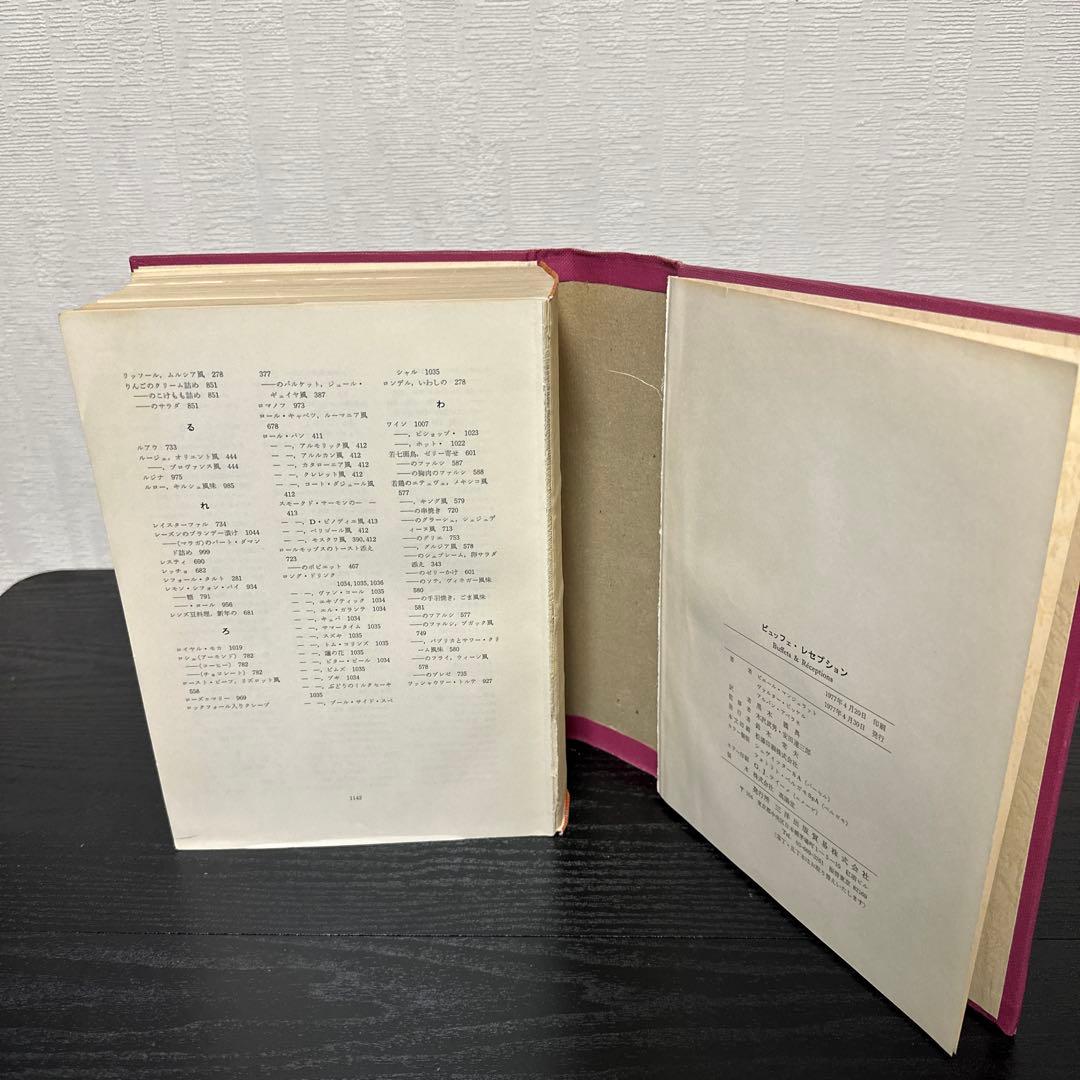 リッソール，ムルシア風 278
りんごのクリーム詰め 851
——のこけもも詰め 851
——のサラダ 851
る
ルアウ 733
ルージェ，オリエント風 444
——，プロヴァンス風 444
ルジナ 975
ルロー，キルシュ風味 985
れ
レイスターファル 734
レーズンのブランデー漬け 1044
——(マラガ)のパート・ダマン
ド詰め 999
レスティ 690
レッチョ 682
レフォール・タルト 281
レモン・シフォン・パイ 934
——糖 791
——・ロール 956
レンズ豆料理，新年の 681
ろ
ロイヤル・モカ 1019
ロシェ(アーモンド) 782
——(コーヒー) 782
——(チョコレート) 782
ロースト・ビーフ，リズロット風
558
ローズ＝マリー 969
ロックフォール入りクレープ
377
——のパルケット，ジュール・
ギュイヤ風 387
ロマノフ 973
ロール・キャベツ，ルーマニア風
678
ロール・パン 411
— —，アルモリック風 412
— —，アルルカン風 412
— —，カタローニア風 412
— —，クレレット風 412
— —，コート・ダジュール風
412
スモークド・サーモンの— —
413
— —，D・ピノディエ風 413
— —，ペリゴール風 412
— —，モスクワ風 390, 412
ロールモップスのトースト添え
723
——のポピエット 467
ロング・ドリンク
1034, 1035, 1036
— —，ヴァン・コール 1035
— —，エキゾティック 1034
— —，エル・ガランテ 1034
— —，キュパ 1034
— —，サマータイム 1035
— —，スズキ 1035
— —，トム・コリンズ 1035
— —，蓮の花 1035
— —，ビター・ピール 1034
— —，ピムズ 1035
— —，プギ 1034
— —，ぶどうのミルクセーキ
1035
— —，プール・サイド・スペ
シャル 1035
ロンデル，いわしの 278
わ
ワイン 1007
——，ビショップ・ 1023
——，ホット・ 1022
若七面鳥，ゼリー寄せ 601
——のファルシ 587
——の胸肉のファルシ 588
若鶏のエテュヴェ，メキシコ風
577
——，キング風 579
——の串焼き 720
——のグラーシュ，シェジェデ
ィーヌ風 713
——のグリエ 753
——，グルジア風 578
——のシュプレーム，卵サラダ
添え 343
——のゼリーかけ 601
——のソテ，ヴィネガー風味
580
——の手羽焼き，ごま風味
581
——のファルシ 577
——のファルシ，ブガック風
749
——，パプリカとサワー・クリ
ーム風味 580
——のフライ，ウィーン風
578
——のブレゼ 735
ワッシャウワー・トルテ 927
1143
ビュッフェ・レセプション
Buffets & Réceptions
1977年4月20日 印刷
1977年4月30日 発行
著者 ピエール・マンジュラット
ヴァルター・ビッケル
訳者 黒木義典
監修者 木沢武男・安田達三郎
発行者 鈴木室夫
本文印刷 松濤印刷株式会社
発行所 三洋出版貿易株式会社